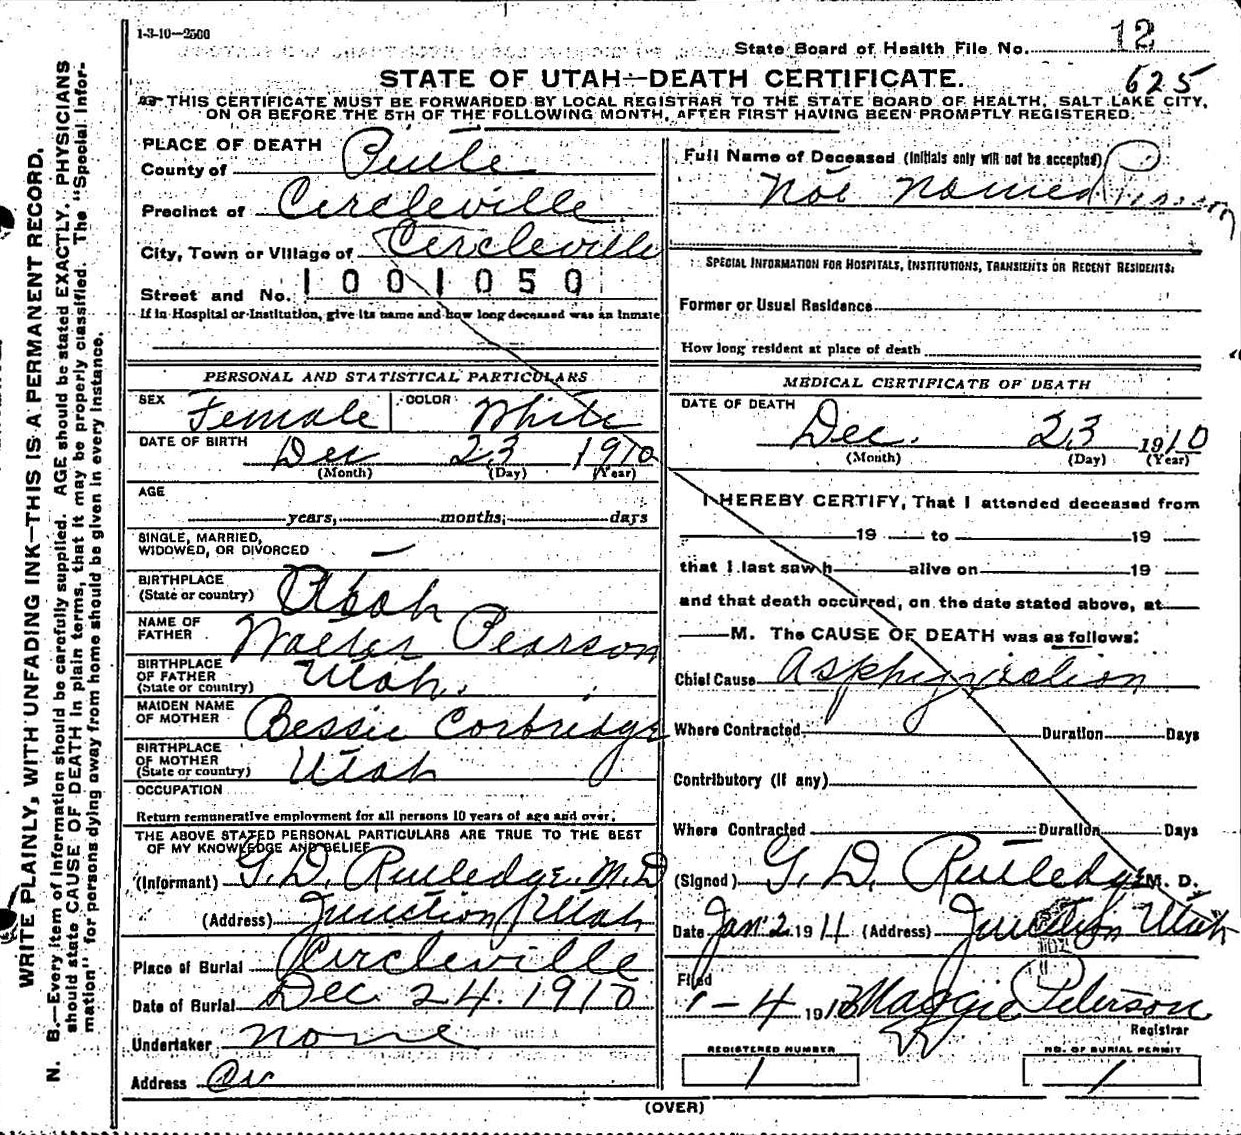 1-3-10—2500
State Board of Health File No. 12
STATE OF UTAH—DEATH CERTIFICATE.
625
THIS CERTIFICATE MUST BE FORWARDED BY LOCAL REGISTRAR TO THE STATE BOARD OF HEALTH, SALT LAKE CITY,
ON OR BEFORE THE 5TH OF THE FOLLOWING MONTH, AFTER FIRST HAVING BEEN PROMPTLY REGISTERED.
WRITE PLAINLY, WITH UNFADING INK—THIS IS A PERMANENT RECORD.
N. B.—Every item of information should be carefully supplied. AGE should be stated EXACTLY. PHYSICIANS
should state CAUSE OF DEATH in plain terms, that it may be properly classified. The "Special Infor-
mation" for persons dying away from home should be given in every instance.
PLACE OF DEATH
County of Piute
Precinct of Circleville
City, Town or Village of Circleville
Street and No. 1001050
If in Hospital or Institution, give its name and how long deceased was an Inmate
PERSONAL AND STATISTICAL PARTICULARS
SEX Female COLOR White
DATE OF BIRTH Dec 23 1910
(Month) (Day) (Year)
AGE
years, months, days
SINGLE, MARRIED,
WIDOWED, OR DIVORCED —
BIRTHPLACE
(State or country) Utah
NAME OF
FATHER Walter Pearson
BIRTHPLACE
OF FATHER
(State or country) Utah.
MAIDEN NAME
OF MOTHER Bessie Corbridge
BIRTHPLACE
OF MOTHER
(State or country) Utah
OCCUPATION
Return remunerative employment for all persons 10 years of age and over.
THE ABOVE STATED PERSONAL PARTICULARS ARE TRUE TO THE BEST
OF MY KNOWLEDGE AND BELIEF
(Informant) G. D. Rutledge. M.D
(Address) Junction Utah
Place of Burial Circleville
Date of Burial Dec. 24. 1910
Undertaker none
Address
Full Name of Deceased (Initials only will not be accepted)
Not Named
SPECIAL INFORMATION FOR HOSPITALS, INSTITUTIONS, TRANSIENTS OR RECENT RESIDENTS:
Former or Usual Residence
How long resident at place of death
MEDICAL CERTIFICATE OF DEATH
DATE OF DEATH
Dec. 23 1910
(Month) (Day) (Year)
I HEREBY CERTIFY, That I attended deceased from
19 to 19
that I last saw h alive on 19
and that death occurred, on the date stated above, at
M. The CAUSE OF DEATH was as follows:
Chief Cause Asphyxiation
Where Contracted Duration Days
Contributory (If any)
Where Contracted Duration Days
(Signed) G. D. Rutledge M. D.
Date Jan 2 1911 (Address) Junction Utah
Filed
1-4 191 Maggie Peterson
Registrar
REGISTERED NUMBER NO. OF BURIAL PERMIT
1 1
(OVER)